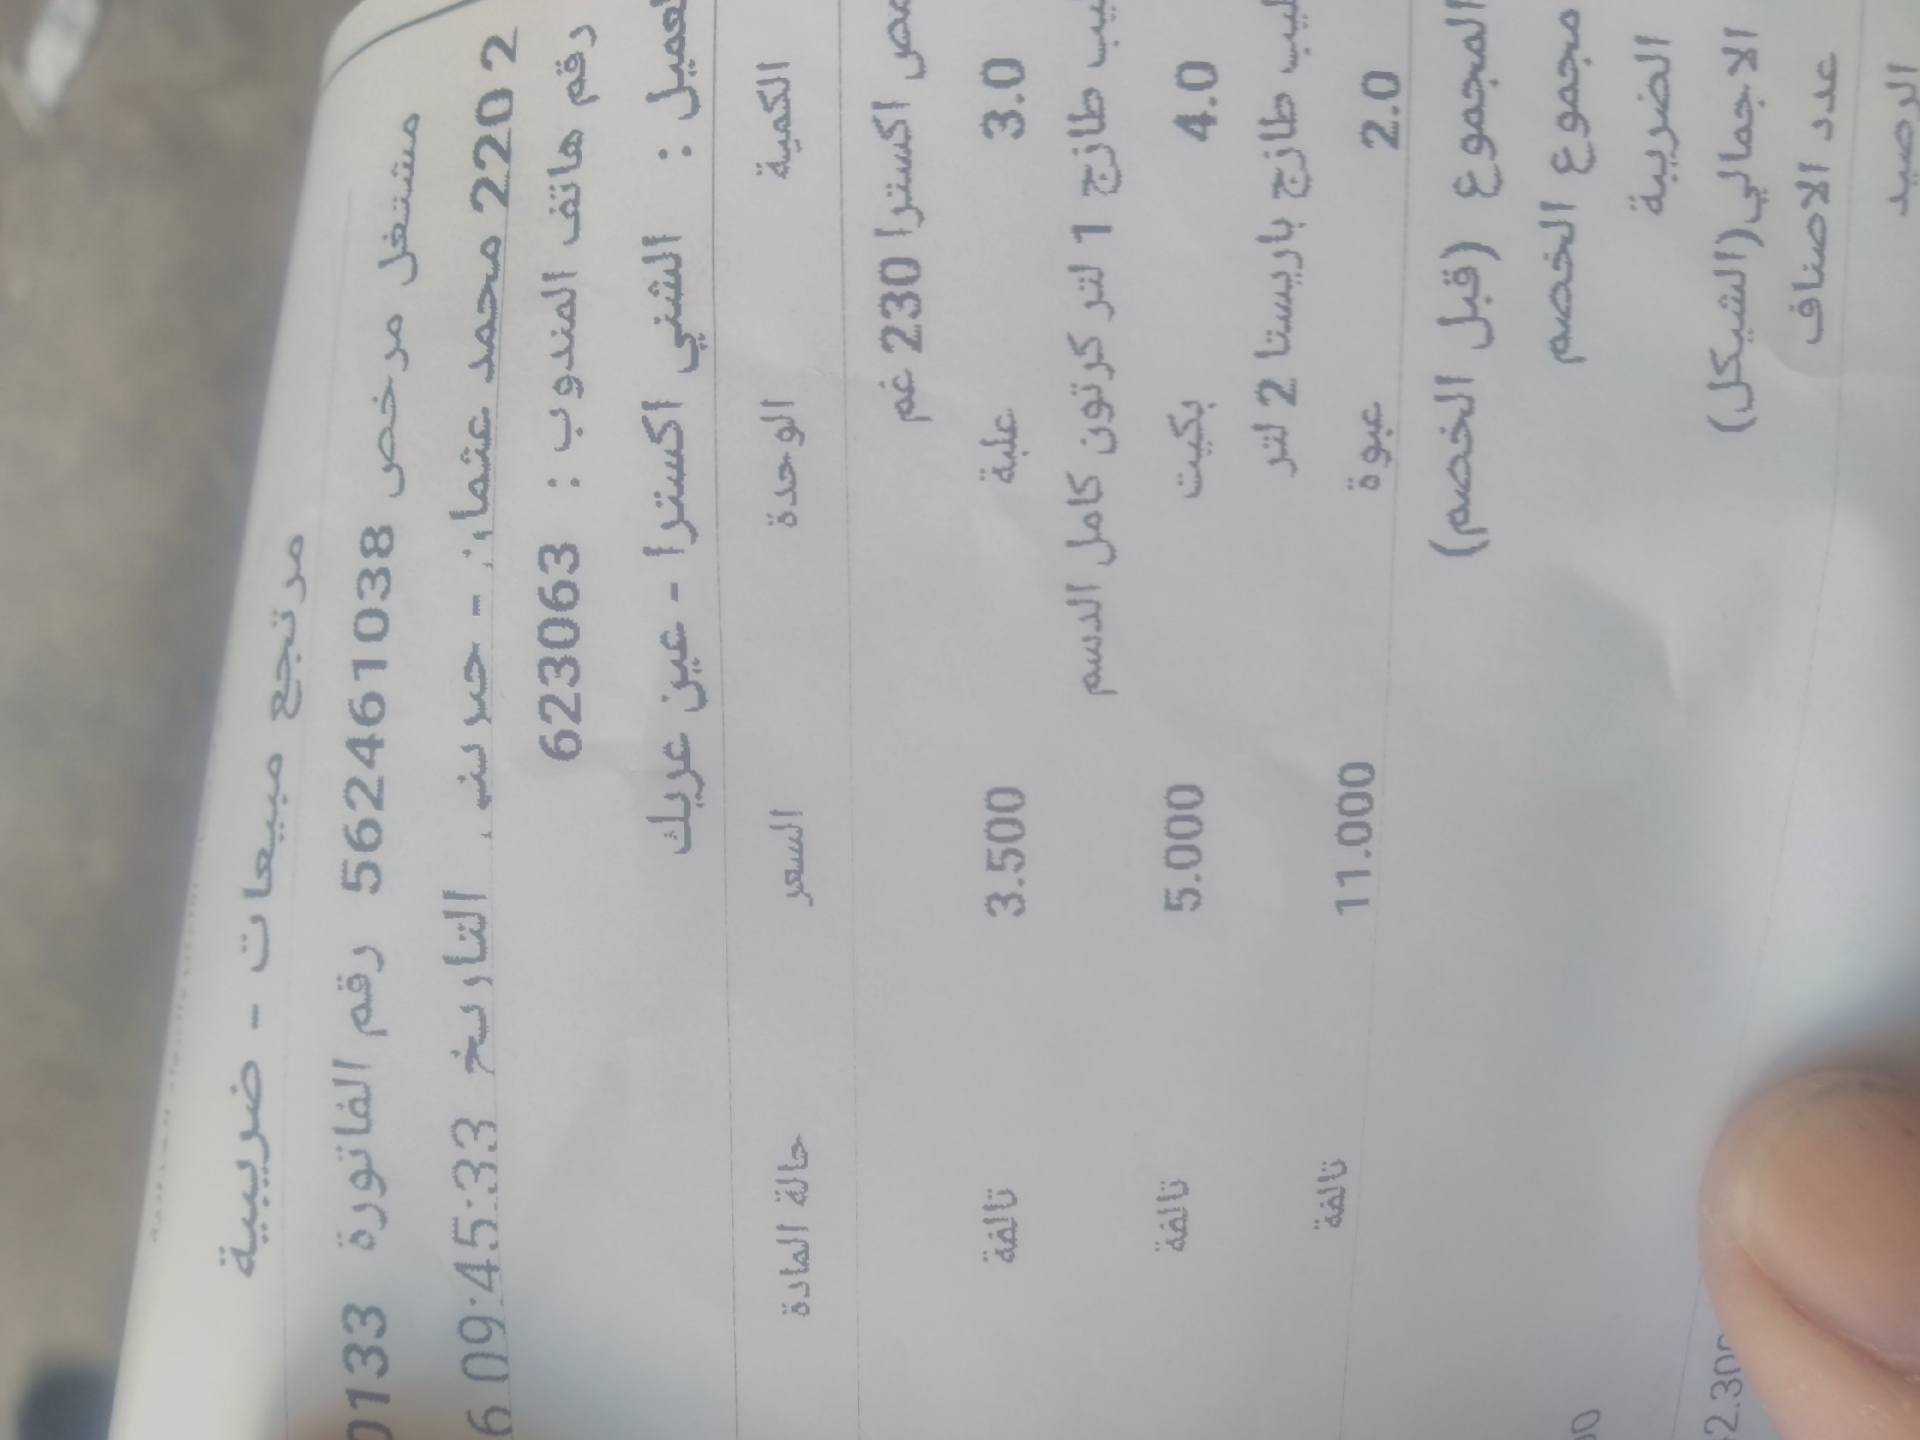 مرتجع مبيعات - ضريبية
مشتغل مرخص 562461038 رقم الفاتورة 0133
2202 محمد عثمان - التاريخ 6 09:45:33
رقم هاتف المندوب : 623063
العميل : الشني اكسترا - عين عريك
الكمية الوحدة السعر حالة المادة
اكسترا 230 غم
3.0 علبة 3.500 تالفة
طازج 1 لتر كرتون كامل الدسم
4.0 بكيت 5.000 تالفة
طازج باريستا 2 لتر
2.0 عبوة 11.000 تالفة
المجموع (قبل الخصم)
مجموع الخصم
الضريبة
الاجمالي(الشيكل)
عدد الاصناف
الرصيد